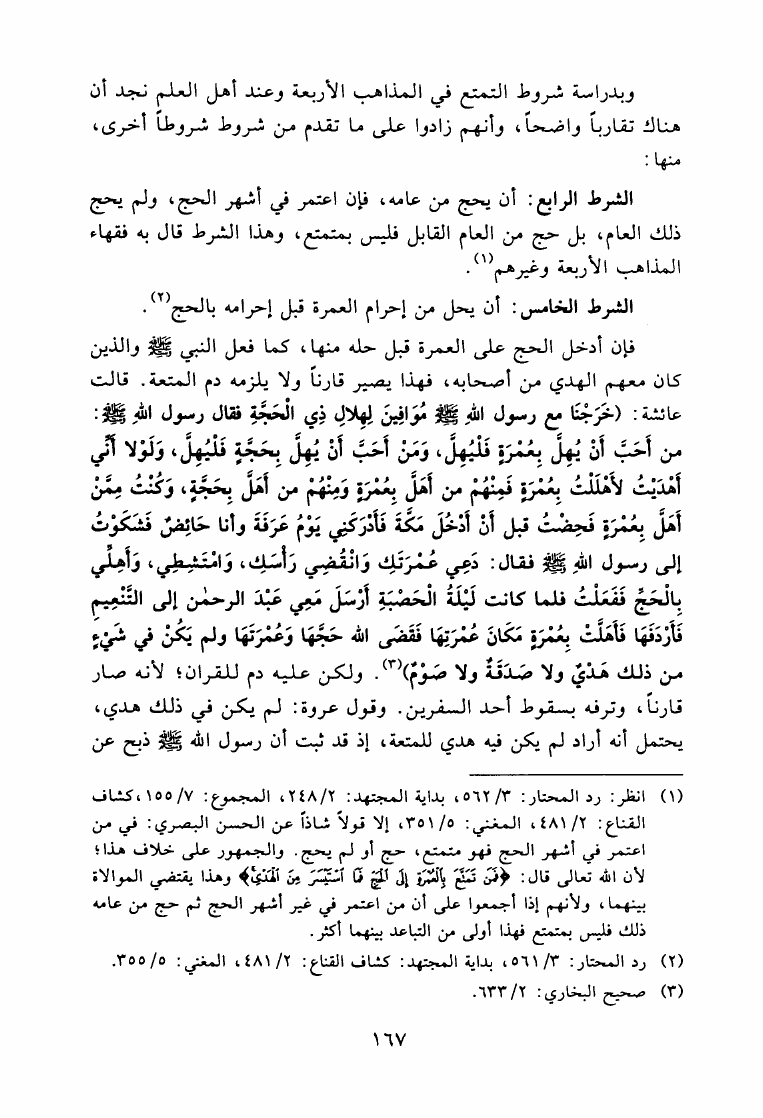 وبدراسة شروط التمتع في المذاهب الأربعة وعند أهل العلم نجد أن
هناك تقارباً واضحاً، وأنهم زادوا على ما تقدم من شروط شروطاً أخرى،
منها:
الشرط الرابع: أن يحج من عامه، فإن اعتمر في أشهر الحج، ولم يحج
ذلك العام، بل حج من العام القابل فليس بمتمتع، وهذا الشرط قال به فقهاء
المذاهب الأربعة وغيرهم(١).
الشرط الخامس: أن يحل من إحرام العمرة قبل إحرامه بالحج(٢).
فإن أدخل الحج على العمرة قبل حله منها، كما فعل النبي ﷺ والذين
كان معهم الهدي من أصحابه، فهذا يصير قارناً ولا يلزمه دم المتعة. قالت
عائشة: (خَرَجْنَا مع رسول اللهِ ﷺ مُوَافِينَ لِهِلالِ ذِي الْحَجَّةِ فقال رسول اللهِ ﷺ:
من أَحَبَّ أَنْ يُهِلَّ بِعُمْرَةٍ فَلْيُهِلَّ، وَمَنْ أَحَبَّ أَنْ يُهِلَّ بِحَجَّةٍ فَلْيُهِلَّ، وَلَوْلا أَنِّي
أَهْدَيْتُ لأَهْلَلْتُ بِعُمْرَةٍ فَمِنْهُمْ من أَهَلَّ بِعُمْرَةٍ وَمِنْهُمْ من أَهَلَّ بِحَجَّةٍ، وَكُنْتُ مِمَّنْ
أَهَلَّ بِعُمْرَةٍ فَحِضْتُ قبل أَنْ أَدْخُلَ مَكَّةَ فَأَدْرَكَنِي يَوْمُ عَرَفَةَ وأنا حَائِضٌ فَشَكَوْتُ
إلى رسول اللهِ ﷺ فقال: دَعِي عُمْرَتَكِ وَانْقُضِي رَأْسَكِ، وَامْتَشِطِي، وَأَهِلِّي
بِالْحَجِّ فَفَعَلْتُ فلما كانت لَيْلَةُ الْحَصْبَةِ أَرْسَلَ مَعِي عَبْدَ الرحمٰن إلى التَّنْعِيمِ
فَأَرْدَفَهَا فَأَهَلَّتْ بِعُمْرَةٍ مَكَانَ عُمْرَتِهَا فَقَضَى الله حَجَّهَا وَعُمْرَتَهَا ولم يَكُنْ في شَيْءٍ
من ذلك هَدْيٌ ولا صَدَقَةٌ ولا صَوْمٌ)(٣). ولكن عليه دم للقران؛ لأنه صار
قارناً، وترفه بسقوط أحد السفرين. وقول عروة: لم يكن في ذلك هدي،
يحتمل أنه أراد لم يكن فيه هدي للمتعة، إذ قد ثبت أن رسول الله ﷺ ذبح عن
(١) انظر: رد المحتار: ٣/ ٥٦٢، بداية المجتهد: ٢/ ٢٤٨، المجموع: ٧/ ١٥٥، كشاف
القناع: ٢/ ٤٨١، المغني: ٥/ ٣٥١، إلا قولاً شاذاً عن الحسن البصري: في من
اعتمر في أشهر الحج فهو متمتع، حج أو لم يحج. والجمهور على خلاف هذا؛
لأن الله تعالى قال: ﴿فَمَن تَمَتَّعَ بِالْعُمْرَةِ إِلَى الْحَجِّ فَمَا اسْتَيْسَرَ مِنَ الْهَدْيِ﴾ وهذا يقتضي الموالاة
بينهما، ولأنهم إذا أجمعوا على أن من اعتمر في غير أشهر الحج ثم حج من عامه
ذلك فليس بمتمتع فهذا أولى من التباعد بينهما أكثر.
(٢) رد المحتار: ٣/ ٥٦١، بداية المجتهد: كشاف القناع: ٢/ ٤٨١، المغني: ٥/ ٣٥٥.
(٣) صحيح البخاري: ٢/ ٦٣٣.
١٦٧